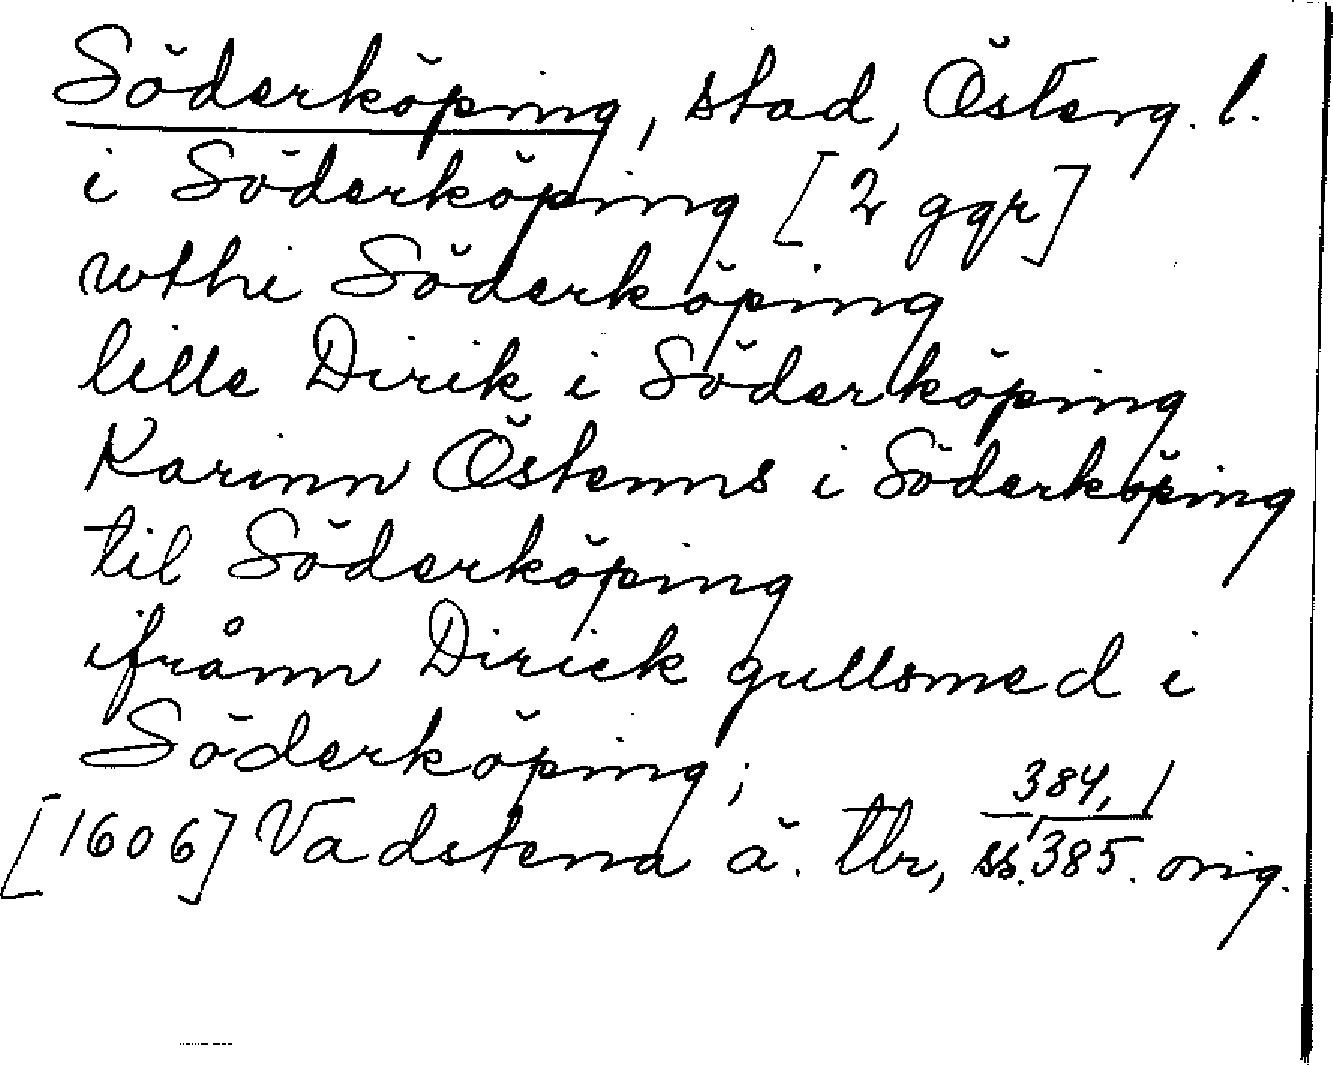 Söderköping, stad, Österg. l.
i Söderköping [2 ggr]
wthi Söderköping
lille Dirik i Söderköping
Karinn Östenns i Söderköping
til Söderköping
ifrånn Dirick gullsmed i
Söderköping;
384,
[1606] Vadstena ä. tbr, ss. 385. orig.